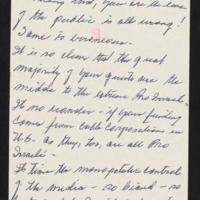 of the public is all wrong!
Same to
It is so clear that the great
majority of your guests are the
middle to the extreme Pro Israeli-
It no wonder - if your funding
comes from cable corporations in
U.S. as they, too, are all Pro
Israeli-
It time the monopolistic control
of the media - so biased - so